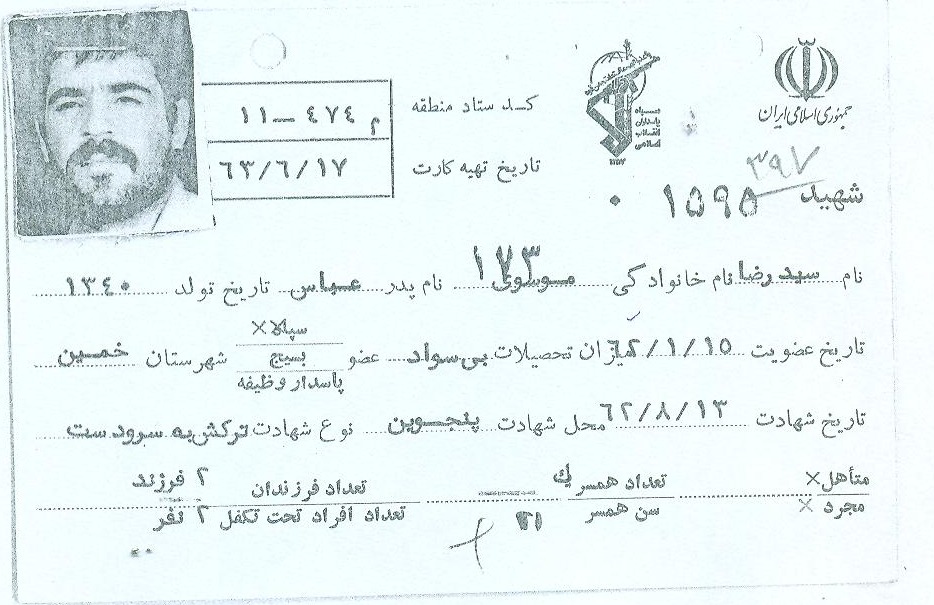 جمهوری اسلامی ایران
سپاه پاسداران انقلاب اسلامی
کد ستاد منطقه م ۴۷۴ – ۱۱
تاریخ تهیه کارت ۶۳/۶/۱۷
۳۹۷
شهید ۱۵۹۵
۱۷۳
نام سید رضا نام خانوادگی موسوی نام پدر عباس تاریخ تولد ۱۳۴۰
تاریخ عضویت ۶۲/۱/۱۵ میزان تحصیلات بی سواد عضو سپاه × بسیج پاسدار وظیفه شهرستان خمین
تاریخ شهادت ۶۲/۸/۱۳ محل شهادت پنجوین نوع شهادت ترکش به سرودست
متأهل × تعداد همسر یک تعداد فرزندان ۲ فرزند
مجرد × سن همسر ۲۱ تعداد افراد تحت تکفل ۲ نفر